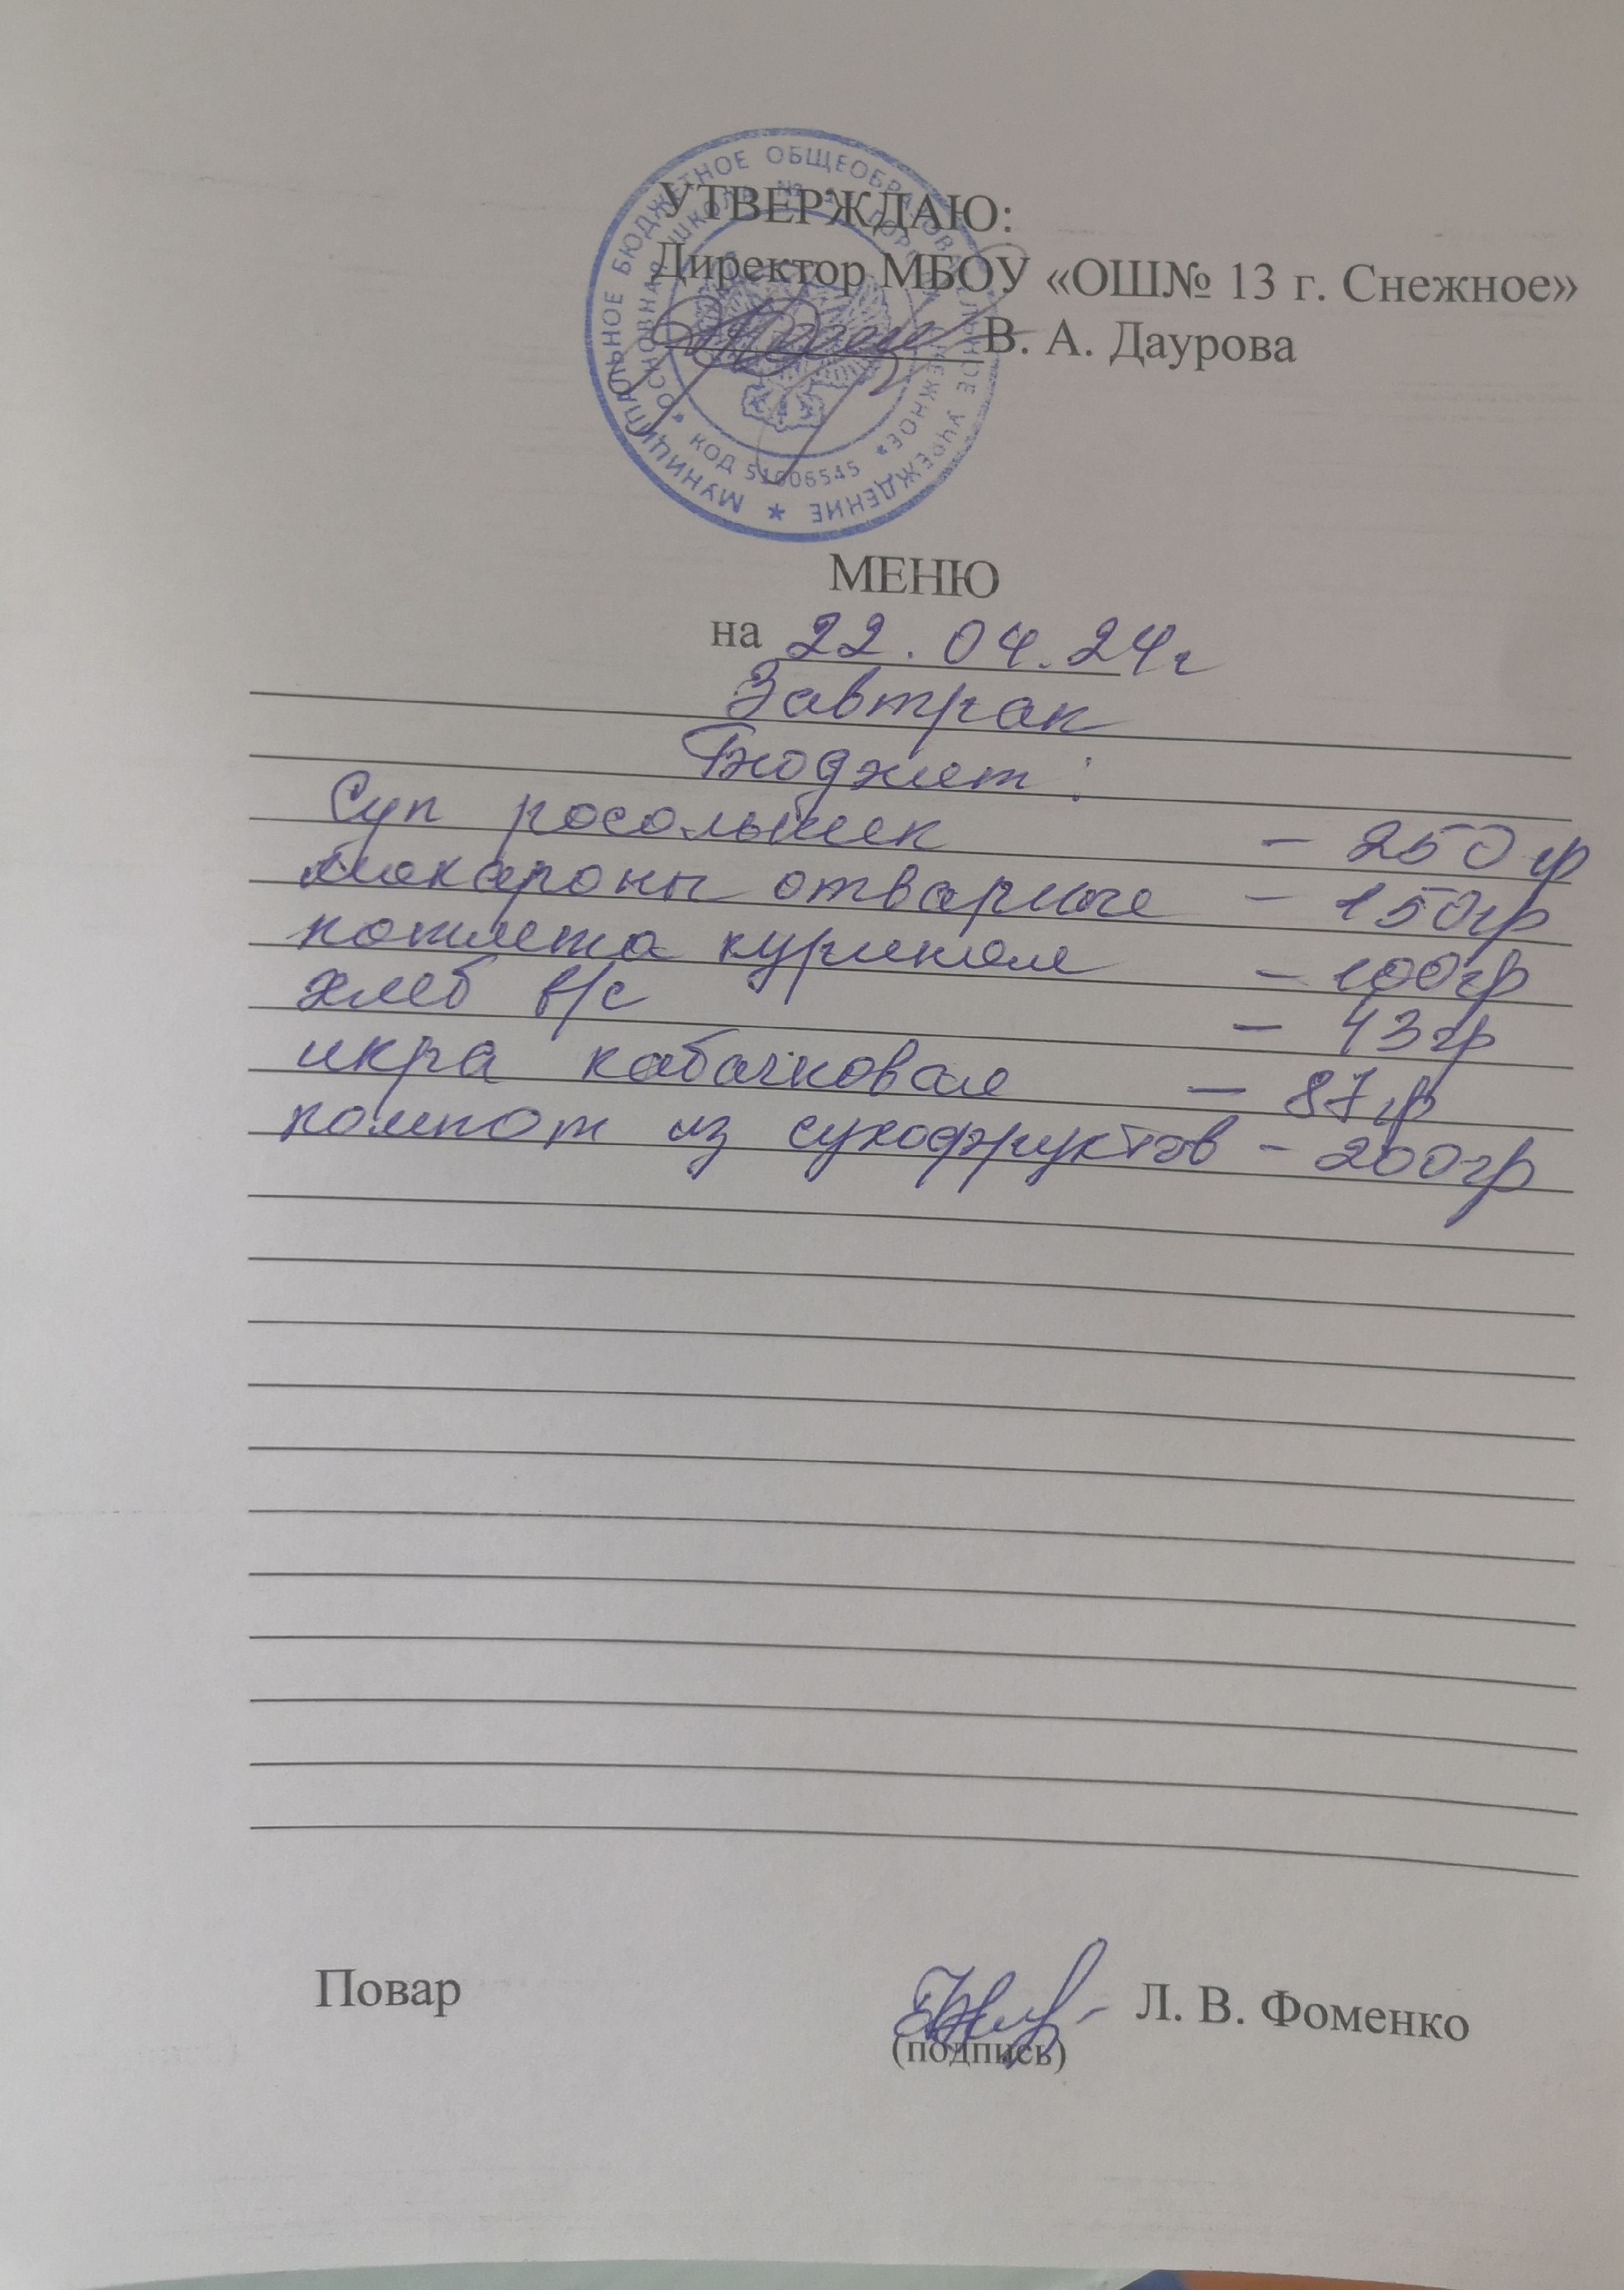 УТВЕРЖДАЮ:
Директор МБОУ «ОШ№ 13 г. Снежное»
В. А. Даурова
МУНИЦИПАЛЬНОЕ БЮДЖЕТНОЕ ОБЩЕОБРАЗОВАТЕЛЬНОЕ УЧРЕЖДЕНИЕ
КОД 51006545
МЕНЮ
на 22.04.24г
Завтрак
Бюджет:
Суп росольник - 250 гр
макароны отварные - 150гр
котлета куриная - 100гр
хлеб в/с - 43гр
икра кабачковая - 87гр
компот из сухофруктов - 200гр
Повар Л. В. Фоменко
(подпись)